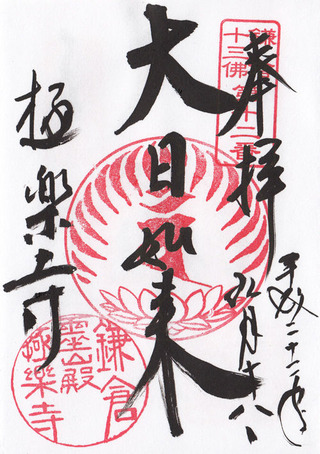 鎌倉
十三佛第十二番
奉拝
平成二十二年
九月十八日
大日如来
極樂寺
鎌倉
山殿
極樂寺